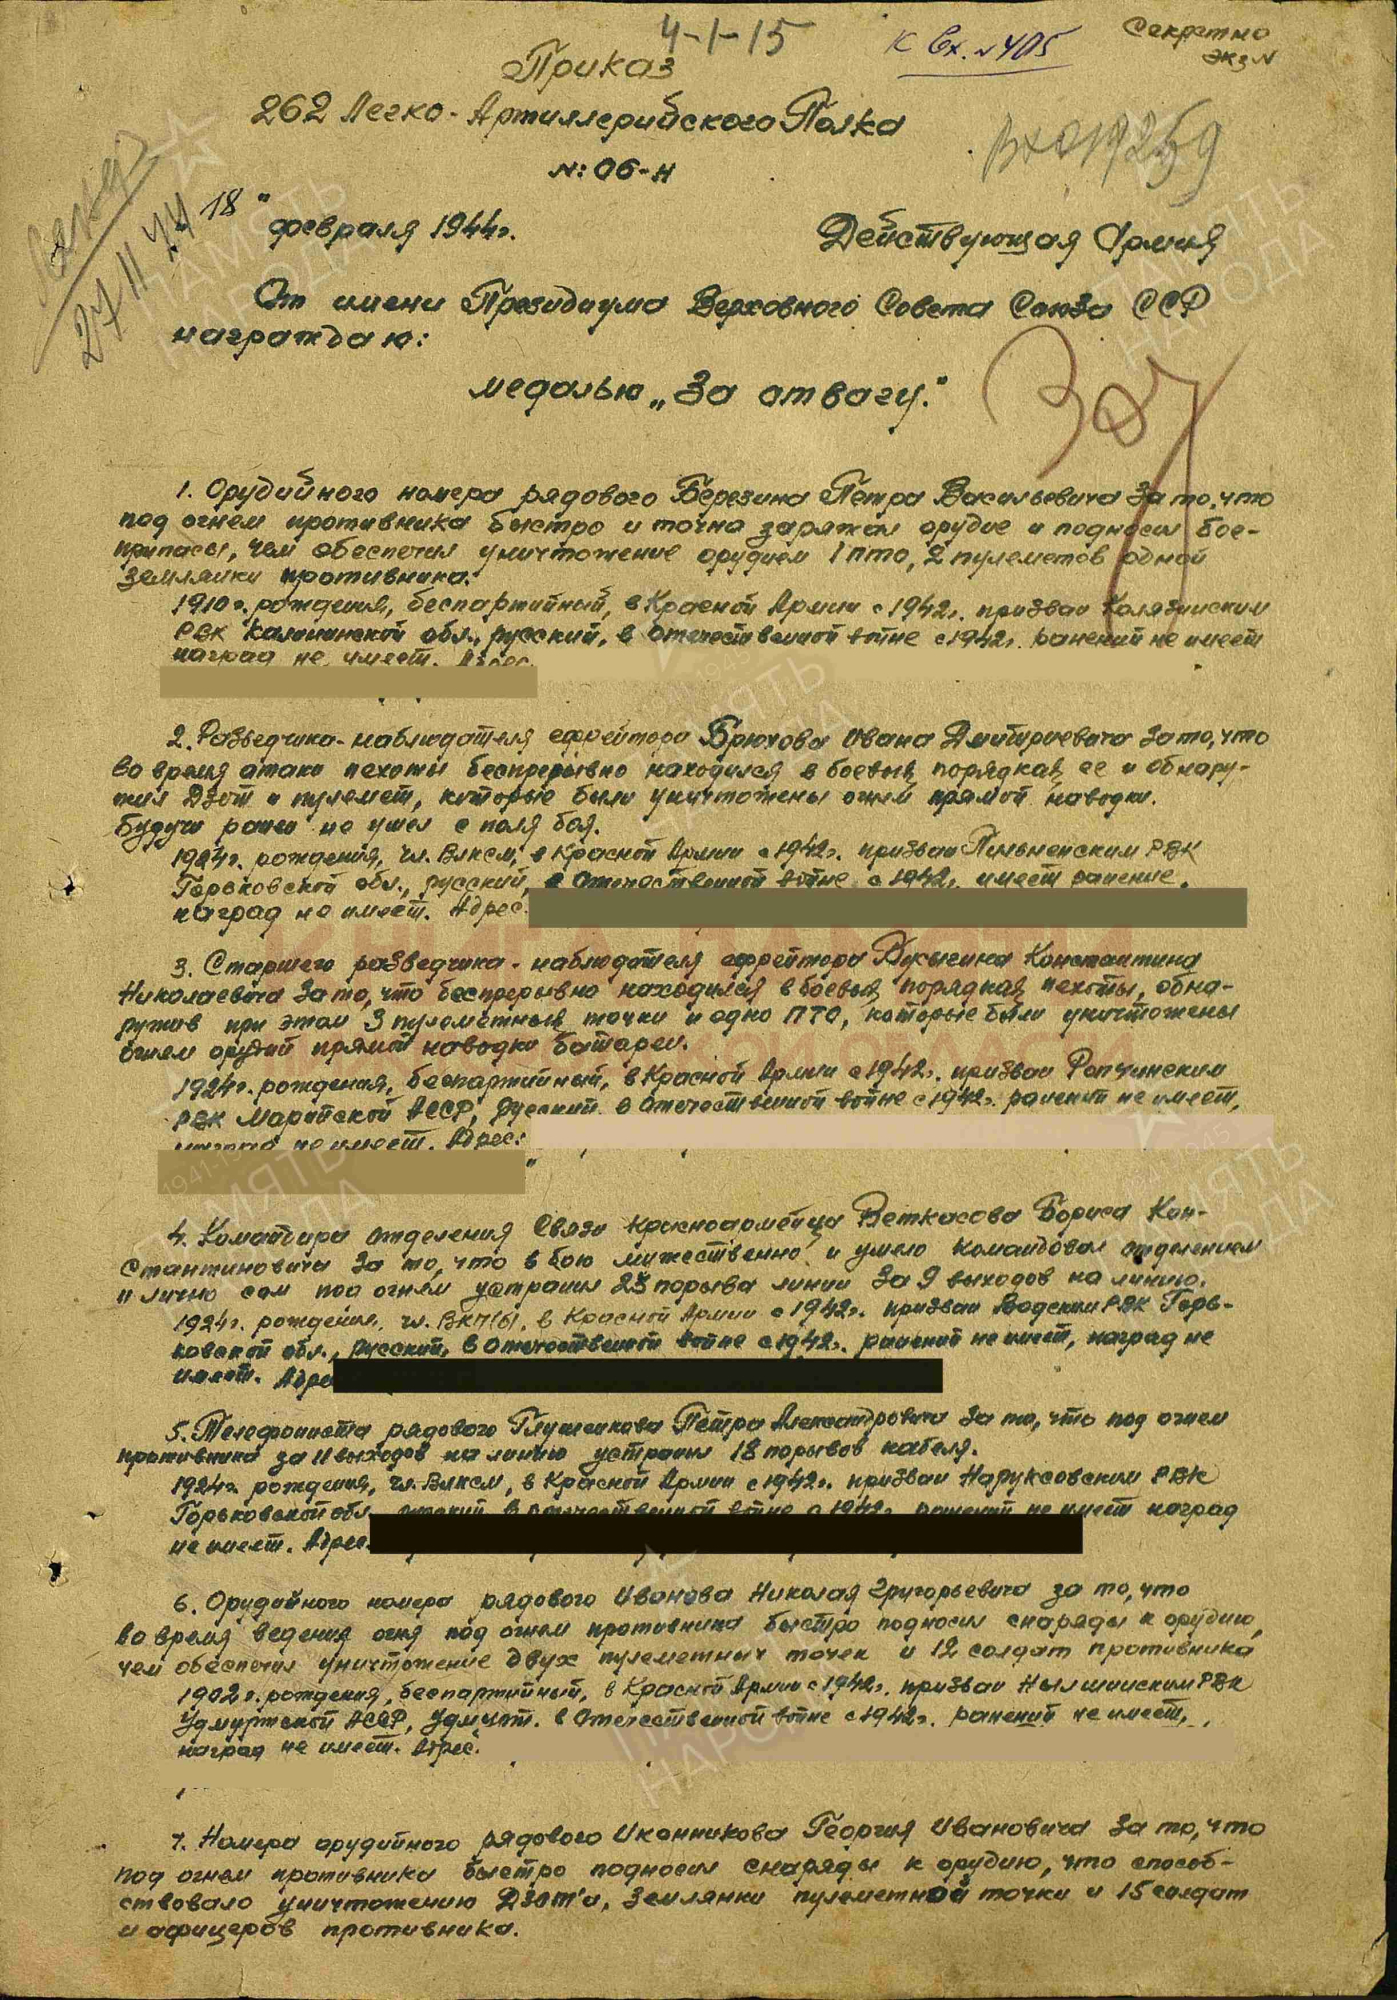 4-1-15
к Вх. №405
Секретно
экз №
Приказ
262 Легко-Артиллерийского Полка
№: 06-н
Вх 019259
27 II 44
"18" февраля 1944г.
Действующая Армия
От имени Президиума Верховного Совета Союза ССР
награждаю:
медалью „За отвагу."
1. Орудийного номера рядового Березина Петра Васильевича За то, что
под огнем противника быстро и точно заряжал орудие и подносил бое-
припасы, чем обеспечил уничтожение орудием 1 пто, 2 пулеметов одной
землянки противника.
1910г. рождения, беспартийный, в Красной Армии с 1942г. призван Калязинским
РВК Калининской обл., русский, в Отечественной войне с 1942г. ранений не имеет
наград не имеет. Адрес
2. Разведчика-наблюдателя ефрейтора Брюхова Ивана Дмитриевича За то, что
во время атаки пехоты беспрерывно находился в боевых порядках ее и обнару-
жил Дзот и пулемет, которые были уничтожены огнем прямой наводки.
Будучи ранен не ушел с поля боя.
1924г. рождения, чл. Влксм, в Красной Армии с 1942г. призван Пильненским РВК
Горьковской обл., русский, в Отечественной войне с 1942г. имеет ранение,
наград не имеет. Адрес:
3. Старшего разведчика-наблюдателя ефрейтора Константина
Николаевича За то, что беспрерывно находился в боевых порядках пехоты, обна-
ружив при этом 3 пулеметных точки и одно ПТО, которые были уничтожены
огнем орудий прямой наводки батареи.
1924г. рождения, беспартийный, в Красной Армии с 1942г. призван
РВК Марийской АССР, русский. в Отечественной войне с 1942г. ранений не имеет,
наград не имеет. Адрес:
4. Командира отделения Связи красноармейца Веткасова Бориса Кон-
стантиновича За то, что в бою мужественно и умело командовал отделением
и лично сам под огнем устранил 23 порыва линии За 9 выходов на линию.
1924г. рождения, чл. ВКП(б), в Красной Армии с 1942г. призван Водским РВК Горь-
ковской обл., русский, в Отечественной войне с 1942г. ранений не имеет, наград не
имеет. Адрес
5. Телефониста рядового Глушенкова Петра Александровича За то, что под огнем
противника за 11 выходов на линию устранил 18 порывов кабеля.
1924г. рождения, чл. Влксм, в Красной Армии с 1942г. призван Наруксовским РВК
Горьковской обл. русский в Отечественной войне с 1942г. ранений не имеет наград
не имеет. Адрес
6. Орудийного номера рядового Иванова Николая Григорьевича за то, что
во время ведения огня под огнем противника быстро подносил снаряды к орудию,
чем обеспечил уничтожение двух пулеметных точек и 12 солдат противника
1902г. рождения, беспартийный, в Красной Армии с 1942г. призван Нылгинским РВК
Удмуртской АССР, удмурт. в Отечественной войне с 1942г. ранений не имеет,
наград не имеет. Адрес.
7. Номера орудийного рядового Иконникова Георгия Ивановича За то, что
под огнем противника быстро подносил снаряды к орудию, что способ-
ствовало уничтожению Дзот'а, Землянки пулеметной точки и 15 солдат
и офицеров противника.